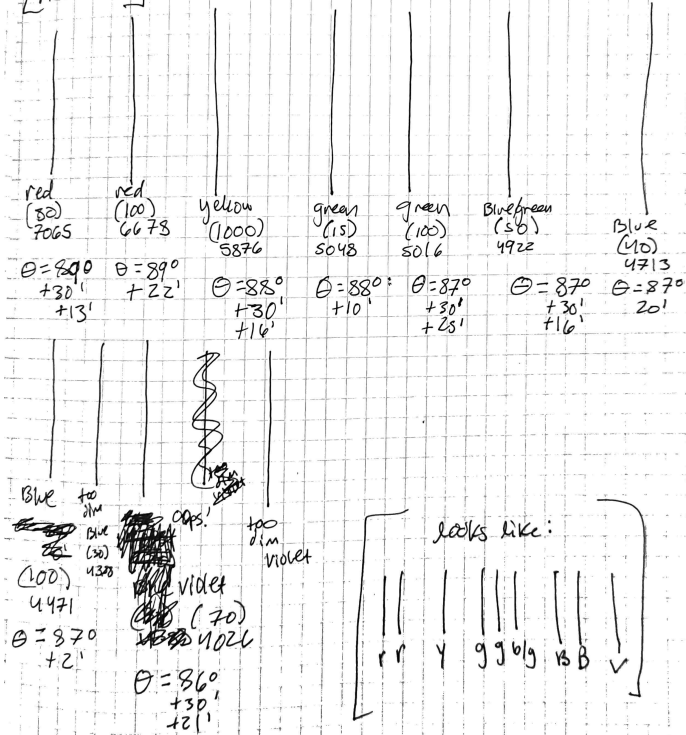 red
(80)
7065
θ = 89°
+30'
+13'
red
(100)
6678
θ = 89°
+22'
yellow
(1000)
5876
θ = 88°
+30'
+16'
green
(15)
5048
θ = 88°
+10'
green
(100)
5016
θ = 87°
+30'
+25'
Blue/green
(50)
4922
θ = 87°
+30'
+16'
Blue
(40)
4713
θ = 87°
20'
Blue
(100)
4471
θ = 87°
+2'
too
dim
Blue
(30)
oops!
violet
(70)
4026
θ = 86°
+30'
+21'
too
dim
violet
looks like:
r r y g g b/g B B V